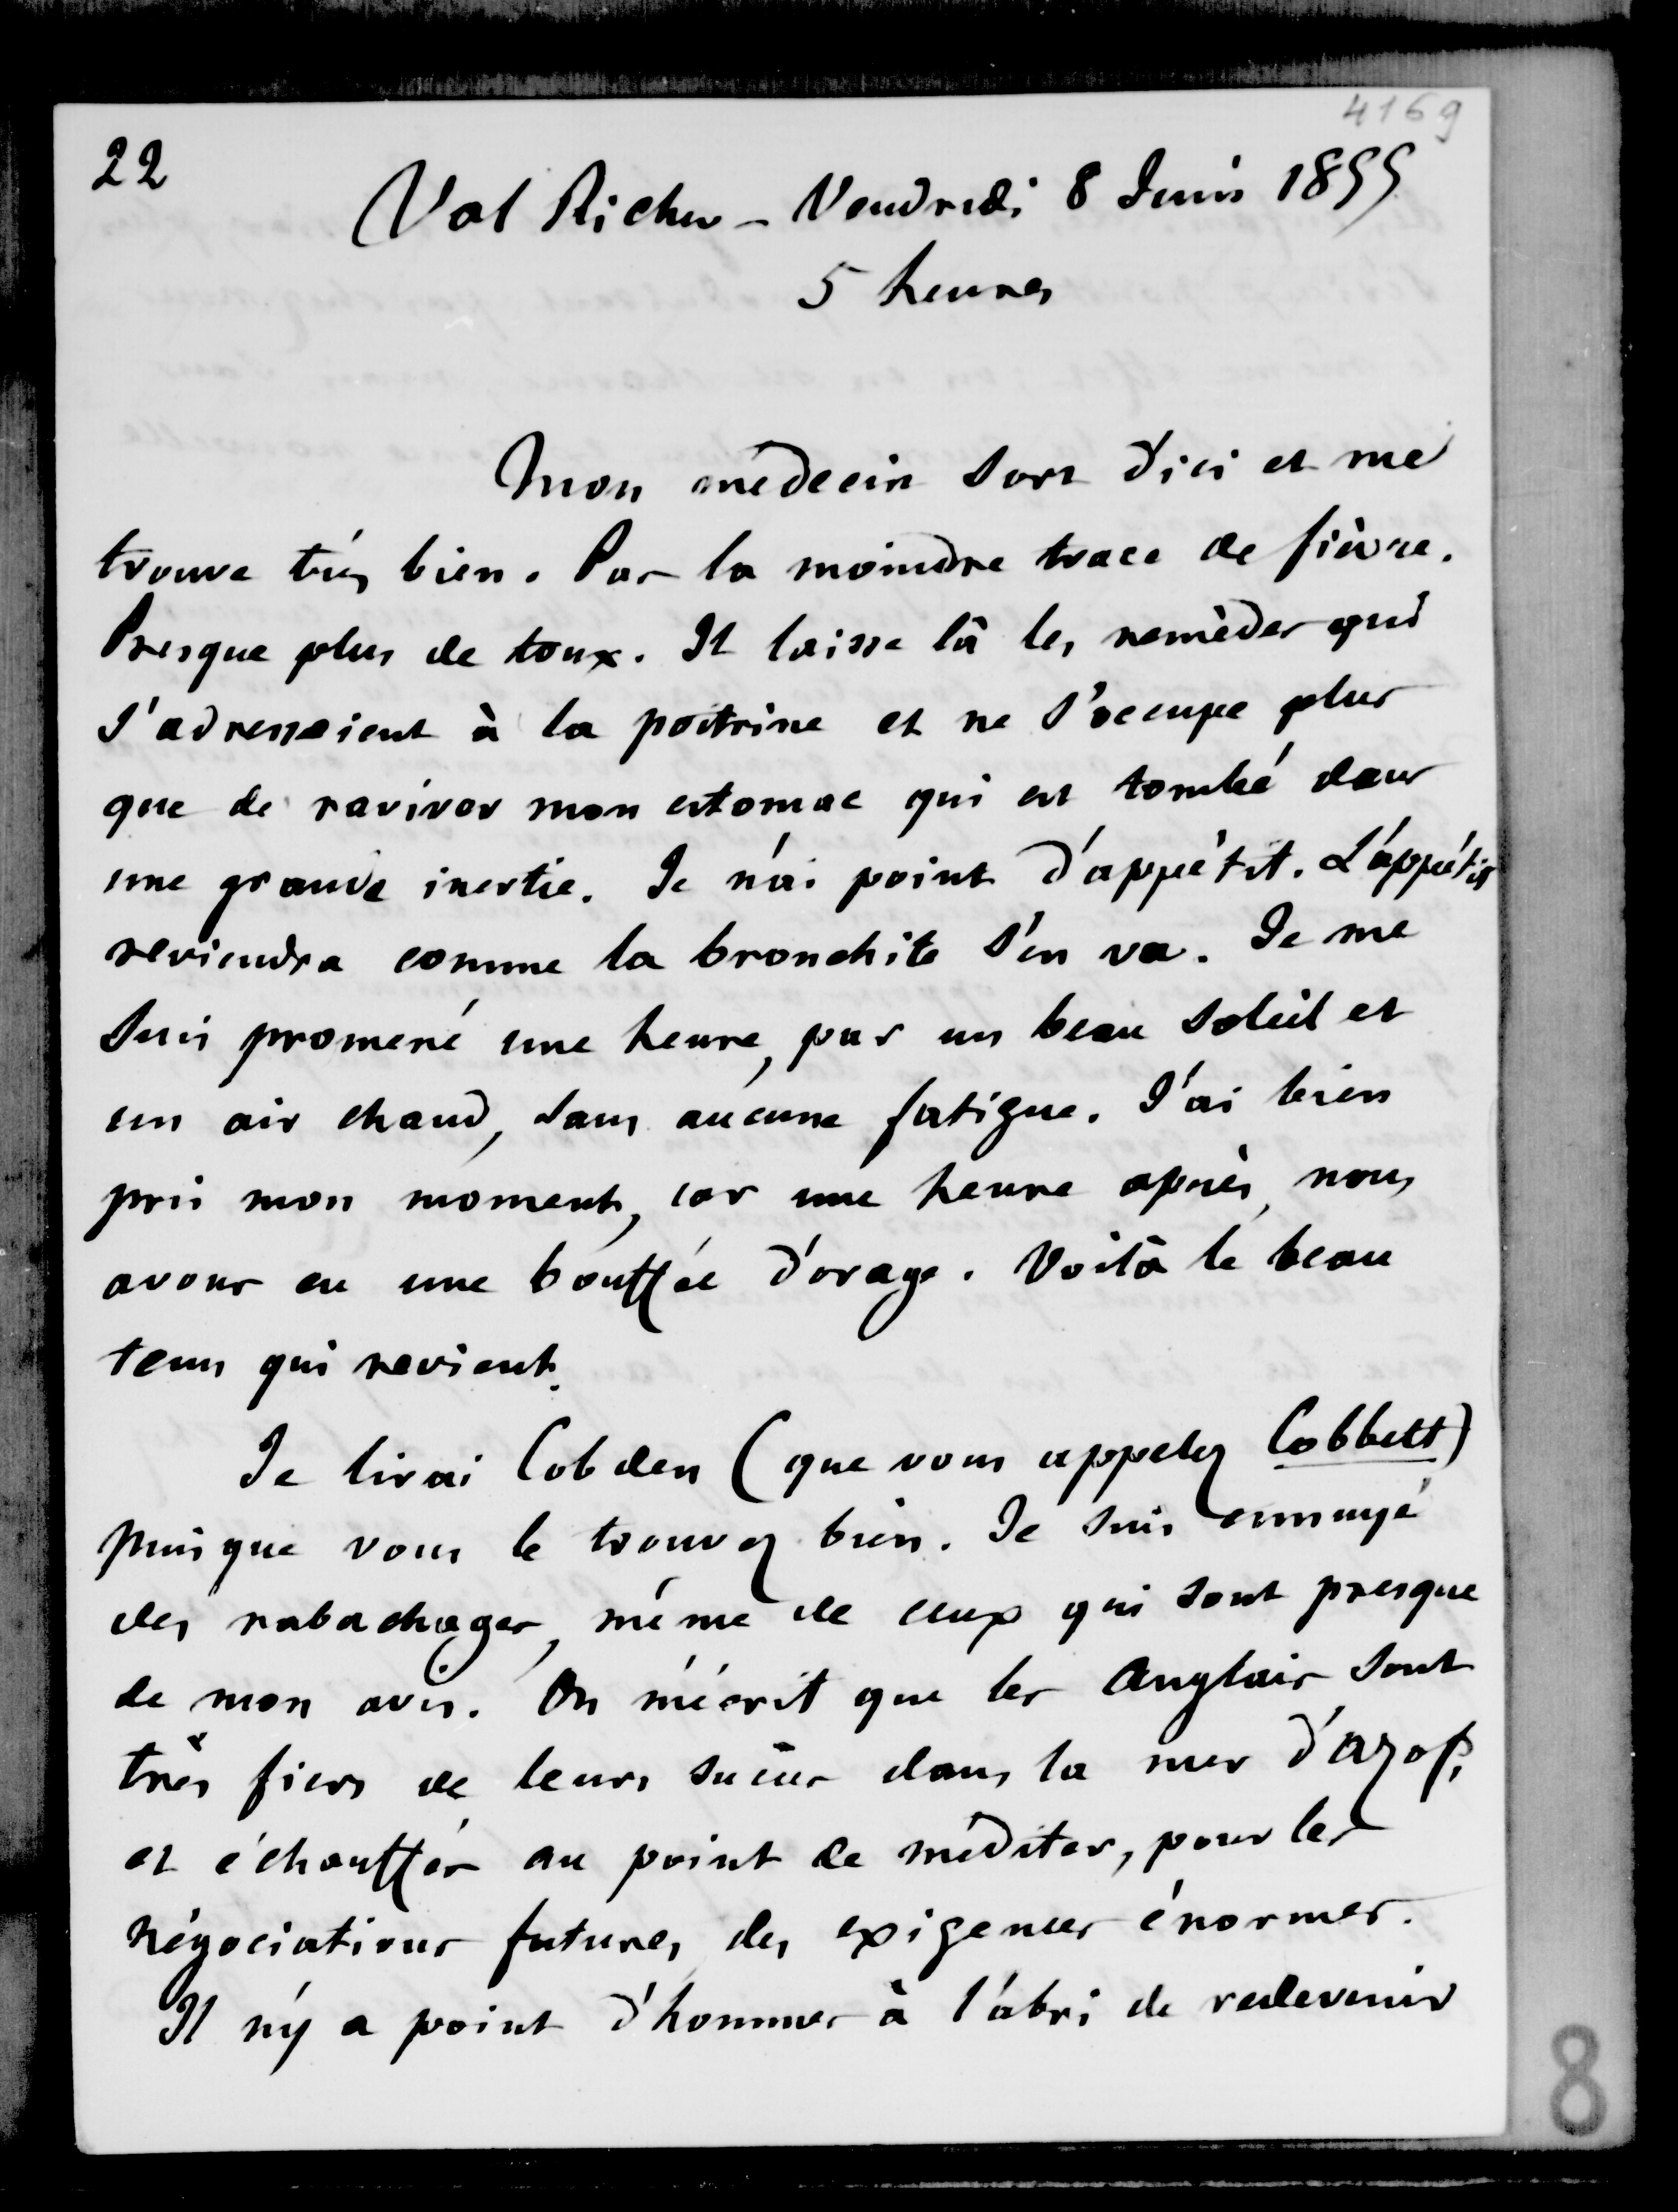 4169
22
Val Richer - Vendredi 8 Juin 1855
5 heures
Mon médecin sort d'ici et me
trouve très bien. Pas la moindre trace de fièvre.
Presque plus de toux. Il laisse là les remèdes qui
s'adressaient à la poitrine et ne s'occupe plus
que de raviver mon estomac qui est tombé dans
une grande inertie. Je n'ai point d'appétit. L'appétit
reviendra comme la bronchite s'en va. Je me
suis promené une heure, par un beau soleil et
un air chaud, sans aucune fatigue. J'ai bien
pris mon moment, car une heure après, nous
avons eu une bouffée d'orage. Voilà le beau
tems qui revient.
Je lirai Cobden (que vous appelez Cobbett)
puisque vous le trouvez bien. Je suis ennuyé
des rabachages, même de ceux qui sont presque
de mon avis. On m'écrit que les Anglais sont
très fiers de leurs succès dans la mer d'Azof,
et échauffés au point de méditer, pour les
négociations futures, des exigences énormes.
Il n'y a point d'hommes à l'abri de redevenir
8